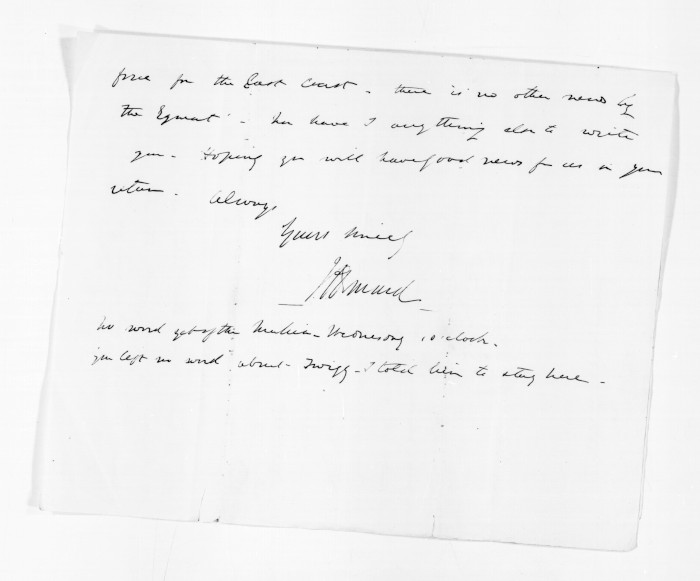 for the East Coast - there is no other news by
the Egmont - nor have I anything else to write
you - Hoping you will have good news for us on your
return. Always
Yours sincerely
no word yet of the Wednesday 10 o'clock.
you left no word about Twigg - I told him to stay here -